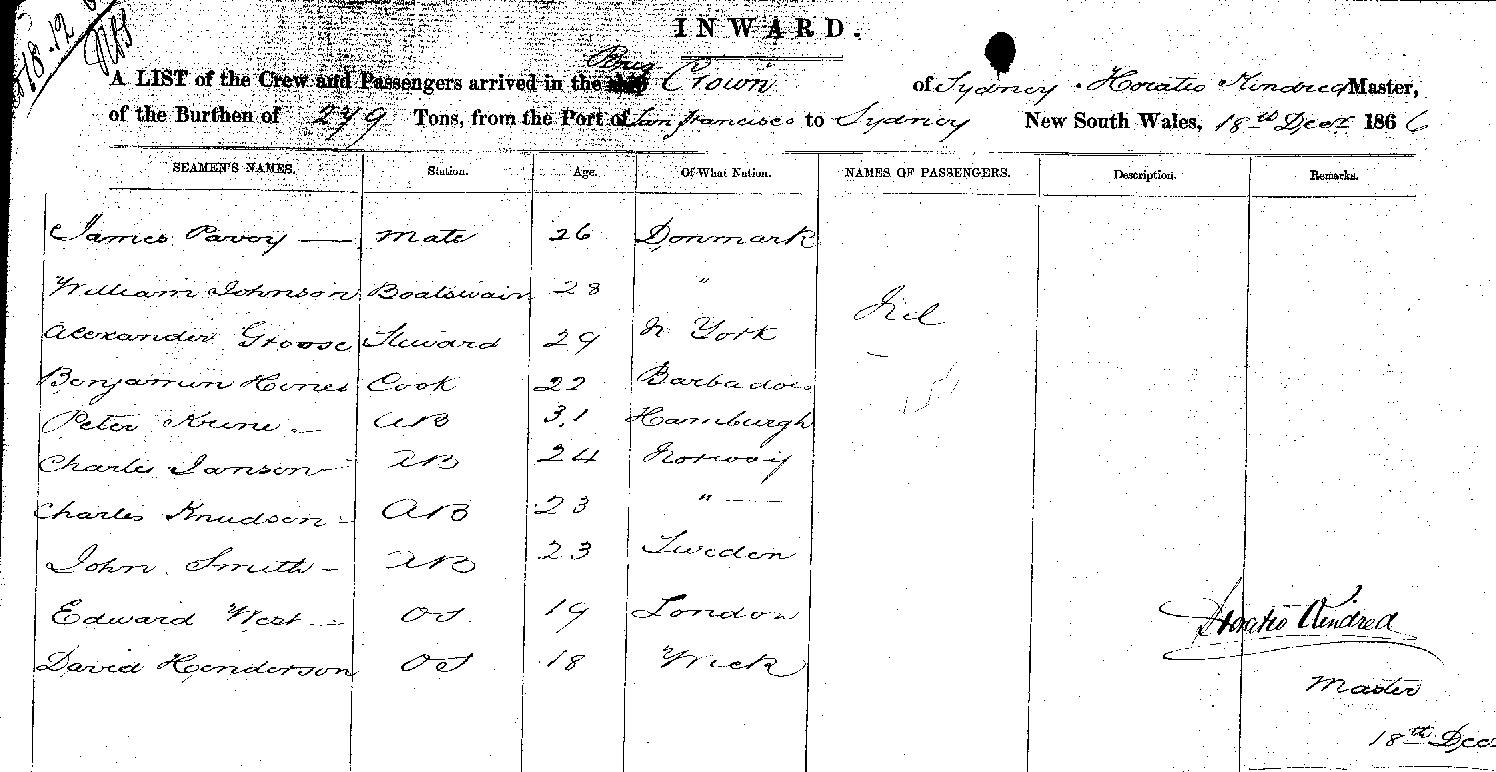 18.12
INWARD.
A LIST of the Crew and Passengers arrived in the Brig Crown of Sydney. Horatio Kindred Master,
of the Burthen of 279 Tons, from the Port of San francisco to Sydney New South Wales, 18th Decr 1866
SEAMEN'S NAMES. Station. Age. Of What Nation. NAMES OF PASSENGERS. Description. Remarks.
James Pavoy — Mate 26 Denmark
William Johnson Boatswain 28 "
Nil
Alexander Grosse Steward 29 N York
Benjamin Hines Cook 22 Barbadoes
Peter AB 31 Hamburgh
Charles Janson AB 24 Norway
Charles Knudson - AB 23 " —
John Smith - AB 23 Sweden
Edward West - OS 19 London
Horatio Kindred
David Henderson OS 18 Wick
Master
18th Decr